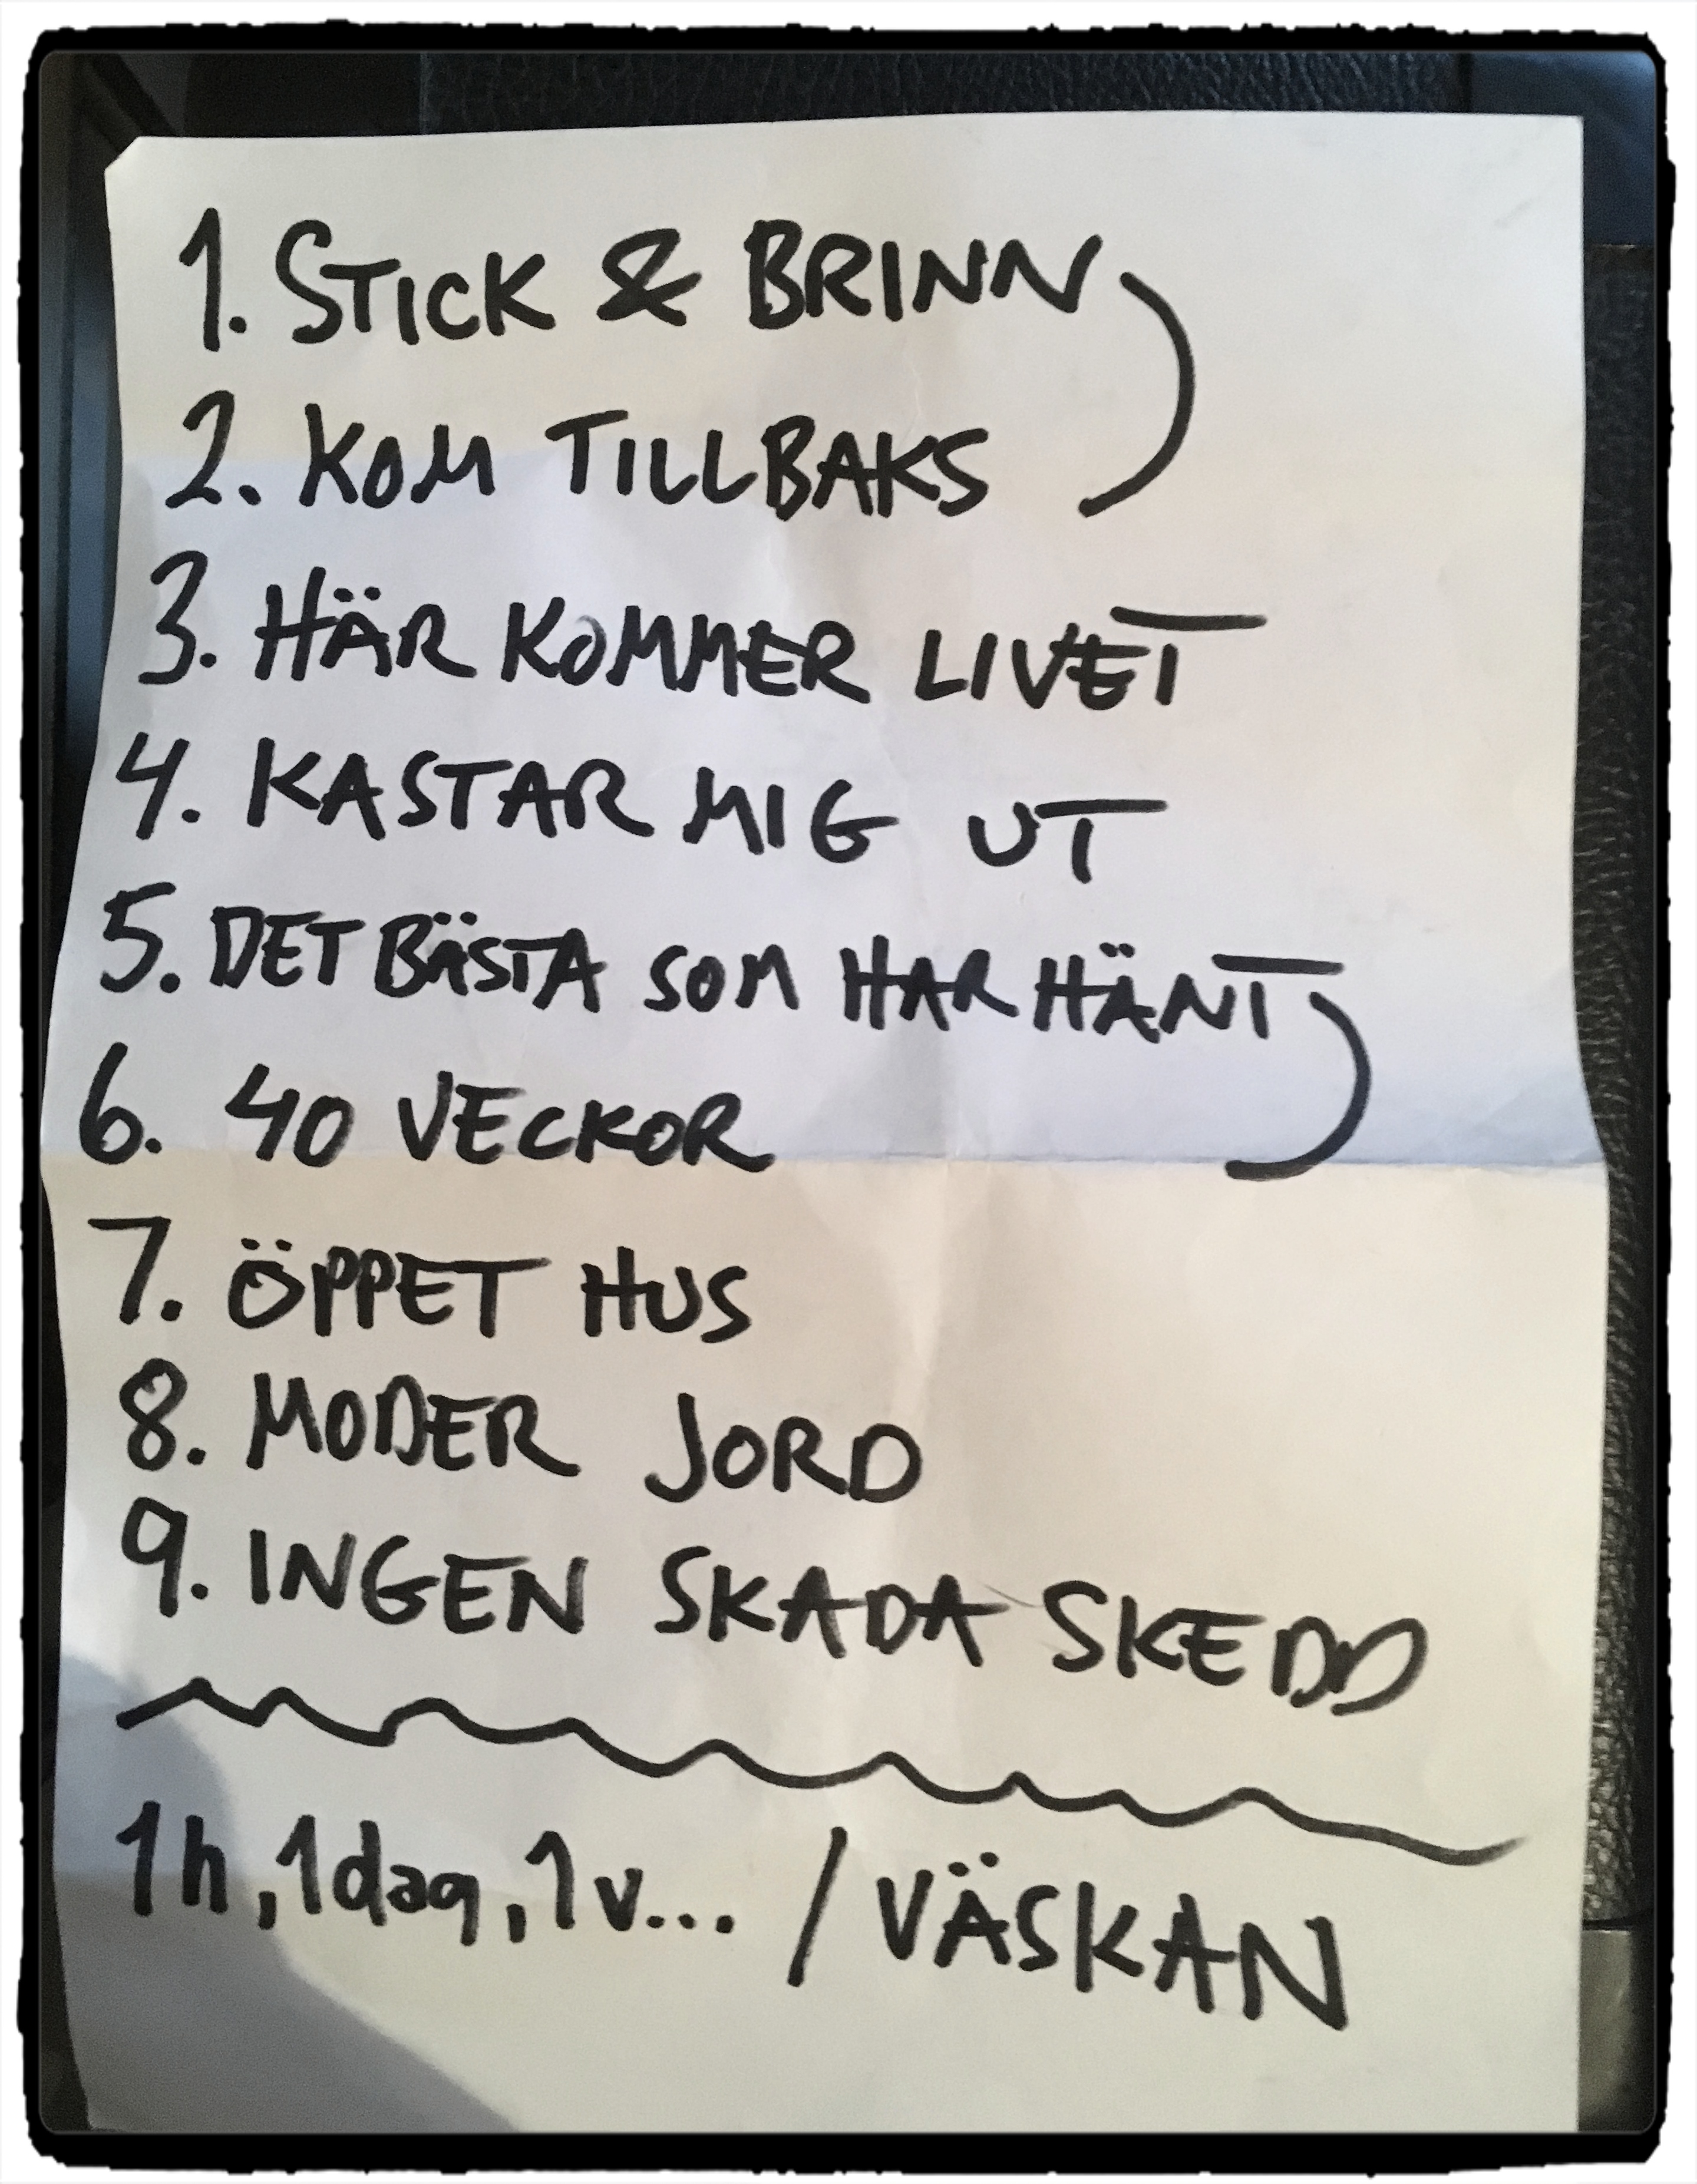 1. STICK & BRINN
2. KOM TILLBAKS
3. HÄR KOMMER LIVET
4. KASTAR MIG UT
5. DET BÄSTA SOM HAR HÄNT
6. 40 VECKOR
7. ÖPPET HUS
8. MODER JORD
9. INGEN SKADA SKEDD
1h, 1dag, 1v... / VÄSKAN